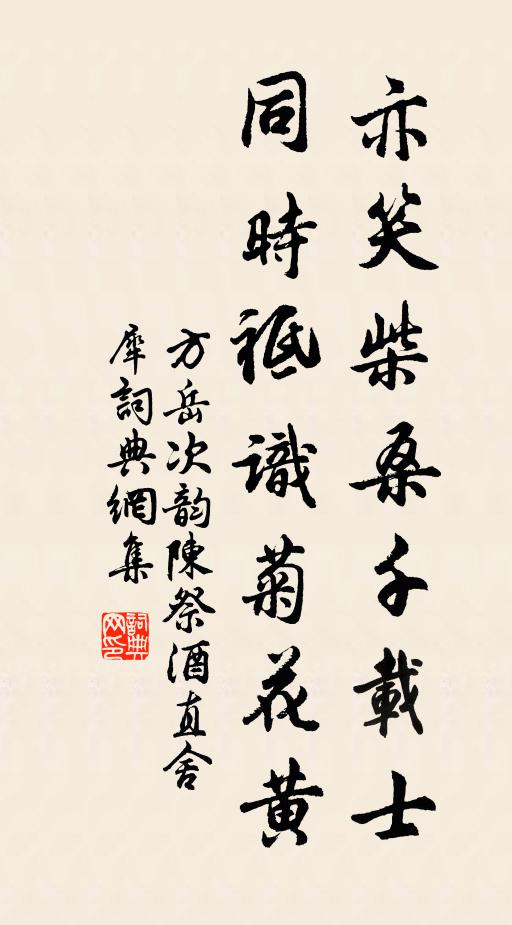 亦笑柴桑千載士
同時祗識菊花黃
方岳次韵陳祭酒直舍
犀詞典網集
詞典网印